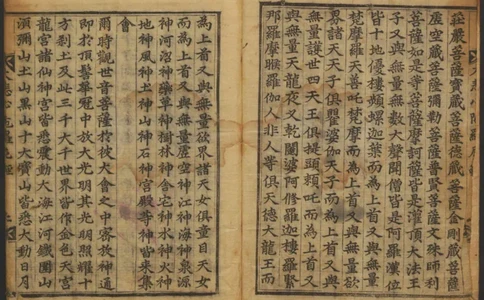 莊嚴菩薩寶藏菩薩德藏菩薩金剛藏菩薩
虛空藏菩薩彌勒菩薩普賢菩薩文殊師利
菩薩如是等菩薩摩訶薩皆是灌頂大法王
子又與無量無數大聲聞僧皆是阿羅漢位
皆十地優樓頻螺迦葉而爲上首又與無量
梵摩羅天善吒梵摩而爲上首又與無量欲
界諸天子俱瞿婆伽天子而爲上首又與
無量護世四天王俱提頭賴吒而爲上首又
與無量天龍夜叉乾闥婆阿修羅迦樓羅緊
那羅摩睺羅伽人非人等俱天德大龍王而
爲上首又與無量欲界諸天女俱童目天女
而爲上首又與無量虛空神江海神泉源
神河沼神藥草神樹林神舍宅神水神火神
地神風神土神山神石神宮殿等神皆來集
會
爾時觀世音菩薩於彼大會之中密放神通
即於頂髻華冠中放大光明其光明照耀十
方刹土及此三千大千世界皆作金色天宮
龍宮諸仙神宮皆悉震動大海江河鐵圍山
須彌山土山黑山十大寶山皆悉大動日月